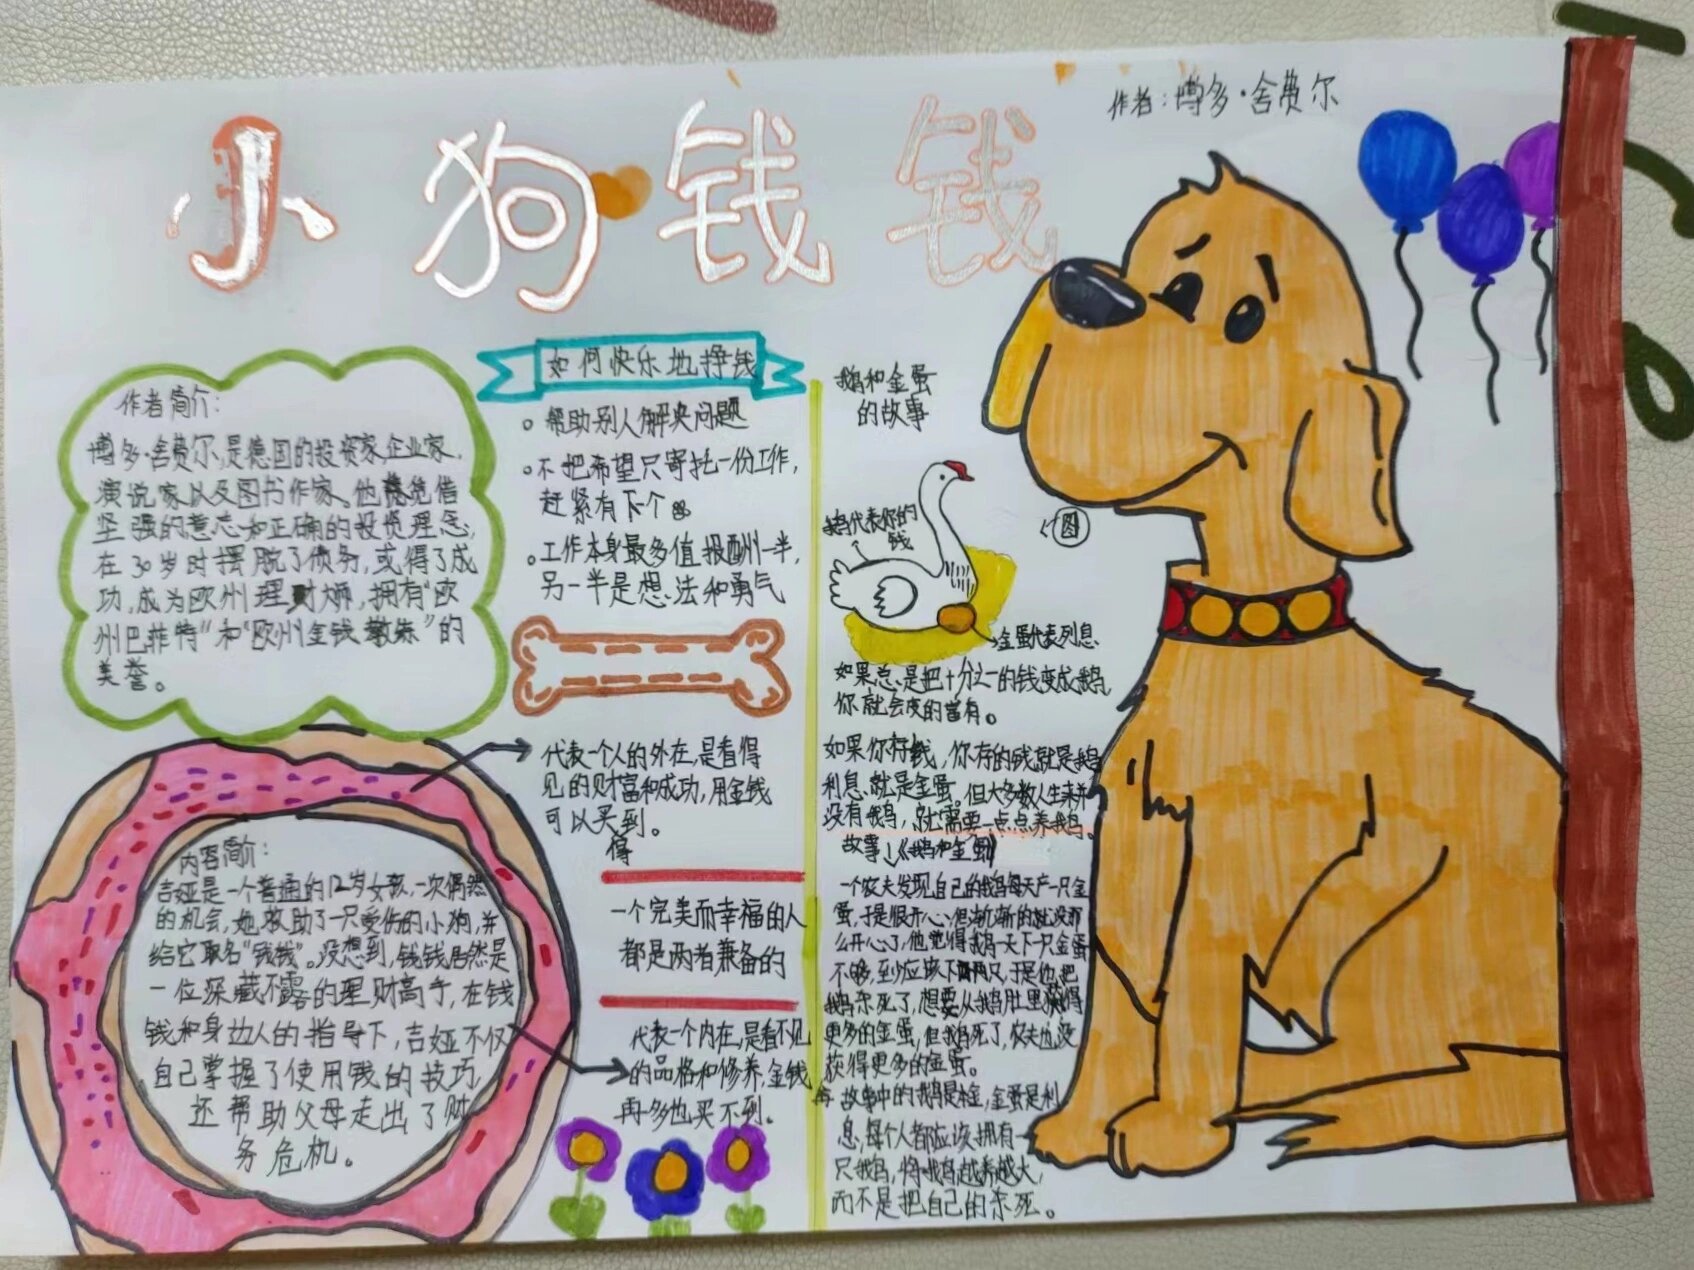 小狗钱钱
作者：博多·舍费尔
作者简介：
博多·舍费尔,是德国的投资家,企业家,
演说家以及图书作家。他凭借
坚强的意志和正确的投资理念,
在30岁时摆脱了债务,或得了成
功,成为欧州理财师,拥有"欧
州巴菲特"和"欧州金钱教练"的
美誉。
内容简介:
吉娅是一个普通的12岁女孩,一次偶然
的机会,她救助了一只受伤的小狗,并
给它取名"钱钱"。没想到,钱钱居然是
一位深藏不露的理财高手,在钱
钱和身边人的指导下,吉娅不仅
自己掌握了使用钱的技巧,
还帮助父母走出了财
务危机。
如何快乐地挣钱
帮助别人解决问题
不把希望只寄托一份工作,
赶紧有下个
工作本身最多值报酬一半,
另一半是想法和勇气
代表一个人的外在,是看得
见的财富和成功,用金钱
可以买到。
得
一个完美而幸福的人
都是两者兼备的
代表一个内在,是看不见
的品格和修养,金钱
再多也买不到。
鹅和金蛋
的故事
鹅代表你的
钱
图
金蛋代表利息
如果总是把十分之一的钱变成鹅,
你就会变的富有。
如果你存钱,你存的钱就是鹅
利息就是金蛋。但大多数人生来并
没有鹅,就需要一点点养鹅。
故事↓《鹅和金蛋》
一个农夫发现自己的鹅每天产一只金
蛋,于是很开心,但渐渐的就没那
么开心了,他觉得鹅一天下一只金蛋
不够,至少应该下两只,于是他把
鹅杀死了,想要从鹅肚里获得
更多的金蛋,但鹅死了,农夫也没
获得更多的金蛋。
故事中的鹅是本金,金蛋是利
息,每个人都应该拥有一
只鹅,将鹅越养越大,
而不是把自己的杀死。